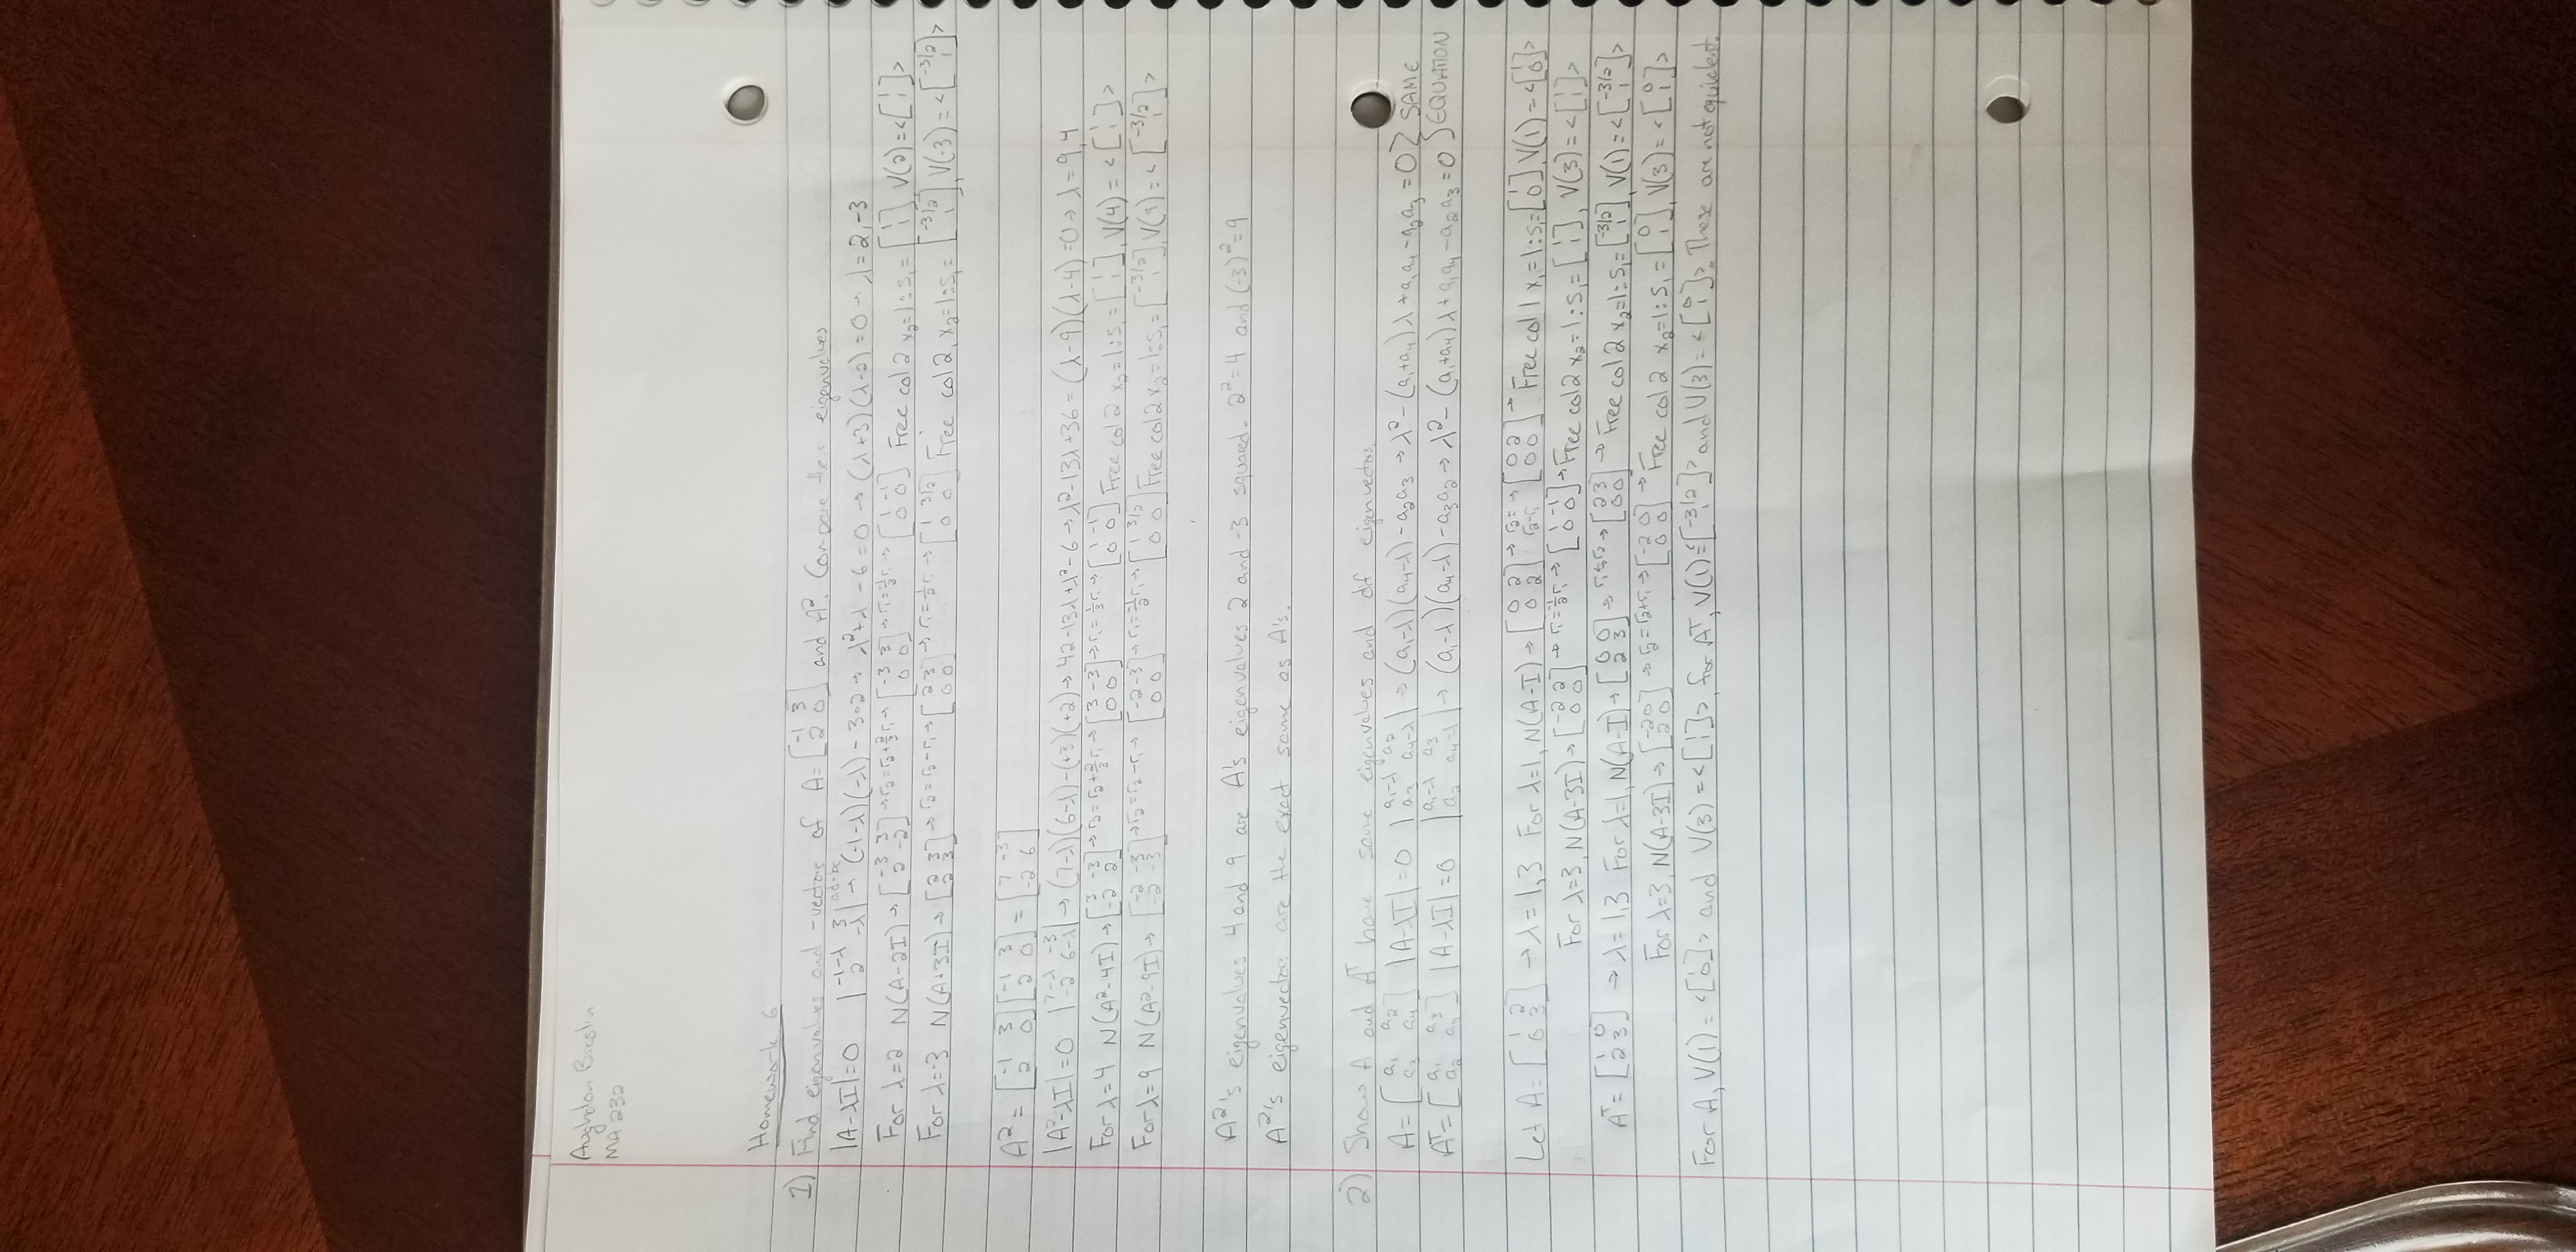 Aughdon Breslin
MA 232
Homework 6
1) Find eigenvalues and -vectors of A=[-1 3; 2 0] and A². Compare their eigenvalues
|A-λI|=0 |-1-λ 3; 2 -λ| ad-bc → (-1-λ)(-λ) - 3·2 → λ²+λ-6=0 → (λ+3)(λ-2)=0 → λ=2,-3
For λ=2 N(A-2I) → [-3 3; 2 -2] → r₂=r₂+2/3r₁ → [-3 3; 0 0] → r₁=-1/3r₁ → [1 -1; 0 0] Free col 2 x₂=1: s₁=[1; 1] V(2)=<[1; 1]>
For λ=-3 N(A+3I) → [2 3; 2 3] → r₂=r₂-r₁ → [2 3; 0 0] → r₁=1/2r₁ → [1 3/2; 0 0] Free col 2, x₂=1: s₁=[-3/2; 1], V(-3)=<[-3/2; 1]>
A²=[-1 3; 2 0][-1 3; 2 0]=[7 -3; -2 6]
|A²-λI|=0 |7-λ -3; -2 6-λ| → (7-λ)(6-λ)-(+3)(+2) → 42-13λ+λ²-6 → λ²-13λ+36=(λ-9)(λ-4)=0 → λ=9,4
For λ=4 N(A²-4I) → [3 -3; -2 2] → r₂=r₂+2/3r₁ → [3 -3; 0 0] → r₁=1/3r₁ → [1 -1; 0 0] Free col 2 x₂=1: s₁=[1; 1], V(4)=<[1; 1]>
For λ=9 N(A²-9I) → [-2 -3; -2 -3] → r₂=r₂-r₁ → [-2 -3; 0 0] → r₁=-1/2r₁ → [1 3/2; 0 0] Free col 2 x₂=1: s₁=[-3/2; 1], V(9)=<[-3/2; 1]>
A²'s eigenvalues 4 and 9 are A's eigenvalues 2 and -3 squared. 2²=4 and (-3)²=9
A²'s eigenvectors are the exact same as A's.
2) Show A and Aᵀ have same eigenvalues and dif eigenvectors.
A=[a₁ a₂; a₃ a₄] |A-λI|=0 |a₁-λ a₂; a₃ a₄-λ| → (a₁-λ)(a₄-λ)-a₂a₃ → λ²-(a₁+a₄)λ+a₁a₄-a₂a₃=0 } SAME
Aᵀ=[a₁ a₃; a₂ a₄] |A-λI|=0 |a₁-λ a₃; a₂ a₄-λ| → (a₁-λ)(a₄-λ)-a₃a₂ → λ²-(a₁+a₄)λ+a₁a₄-a₂a₃=0 } EQUATION
Let A=[1 2; 0 3] → λ=1,3 For λ=1, N(A-I) → [0 2; 0 2] → r₂=r₂-r₁ → [0 2; 0 0] → Free col 1 x₁=1: s₁=[1; 0] V(1)=<[1; 0]>
For λ=3, N(A-3I) → [-2 2; 0 0] → r₁=-1/2r₁ → [1 -1; 0 0] → Free col 2 x₂=1: s₁=[1; 1], V(3)=<[1; 1]>
Aᵀ=[1 0; 2 3] → λ=1,3 For λ=1, N(A-I) → [0 0; 2 3] → r₁↔r₂ → [2 3; 0 0] → Free col 2 x₂=1: s₁=[-3/2; 1], V(1)=<[-3/2; 1]>
For λ=3, N(A-3I) → [-2 0; 2 0] → r₂=r₂+r₁ → [-2 0; 0 0] → Free col 2 x₂=1: s₁=[0; 1], V(3)=<[0; 1]>
For A, V(1)=<[1; 0]> and V(3)=<[1; 1]>, for Aᵀ, V(1)=<[-3/2; 1]> and V(3)=<[0; 1]>. These are not equivalent.